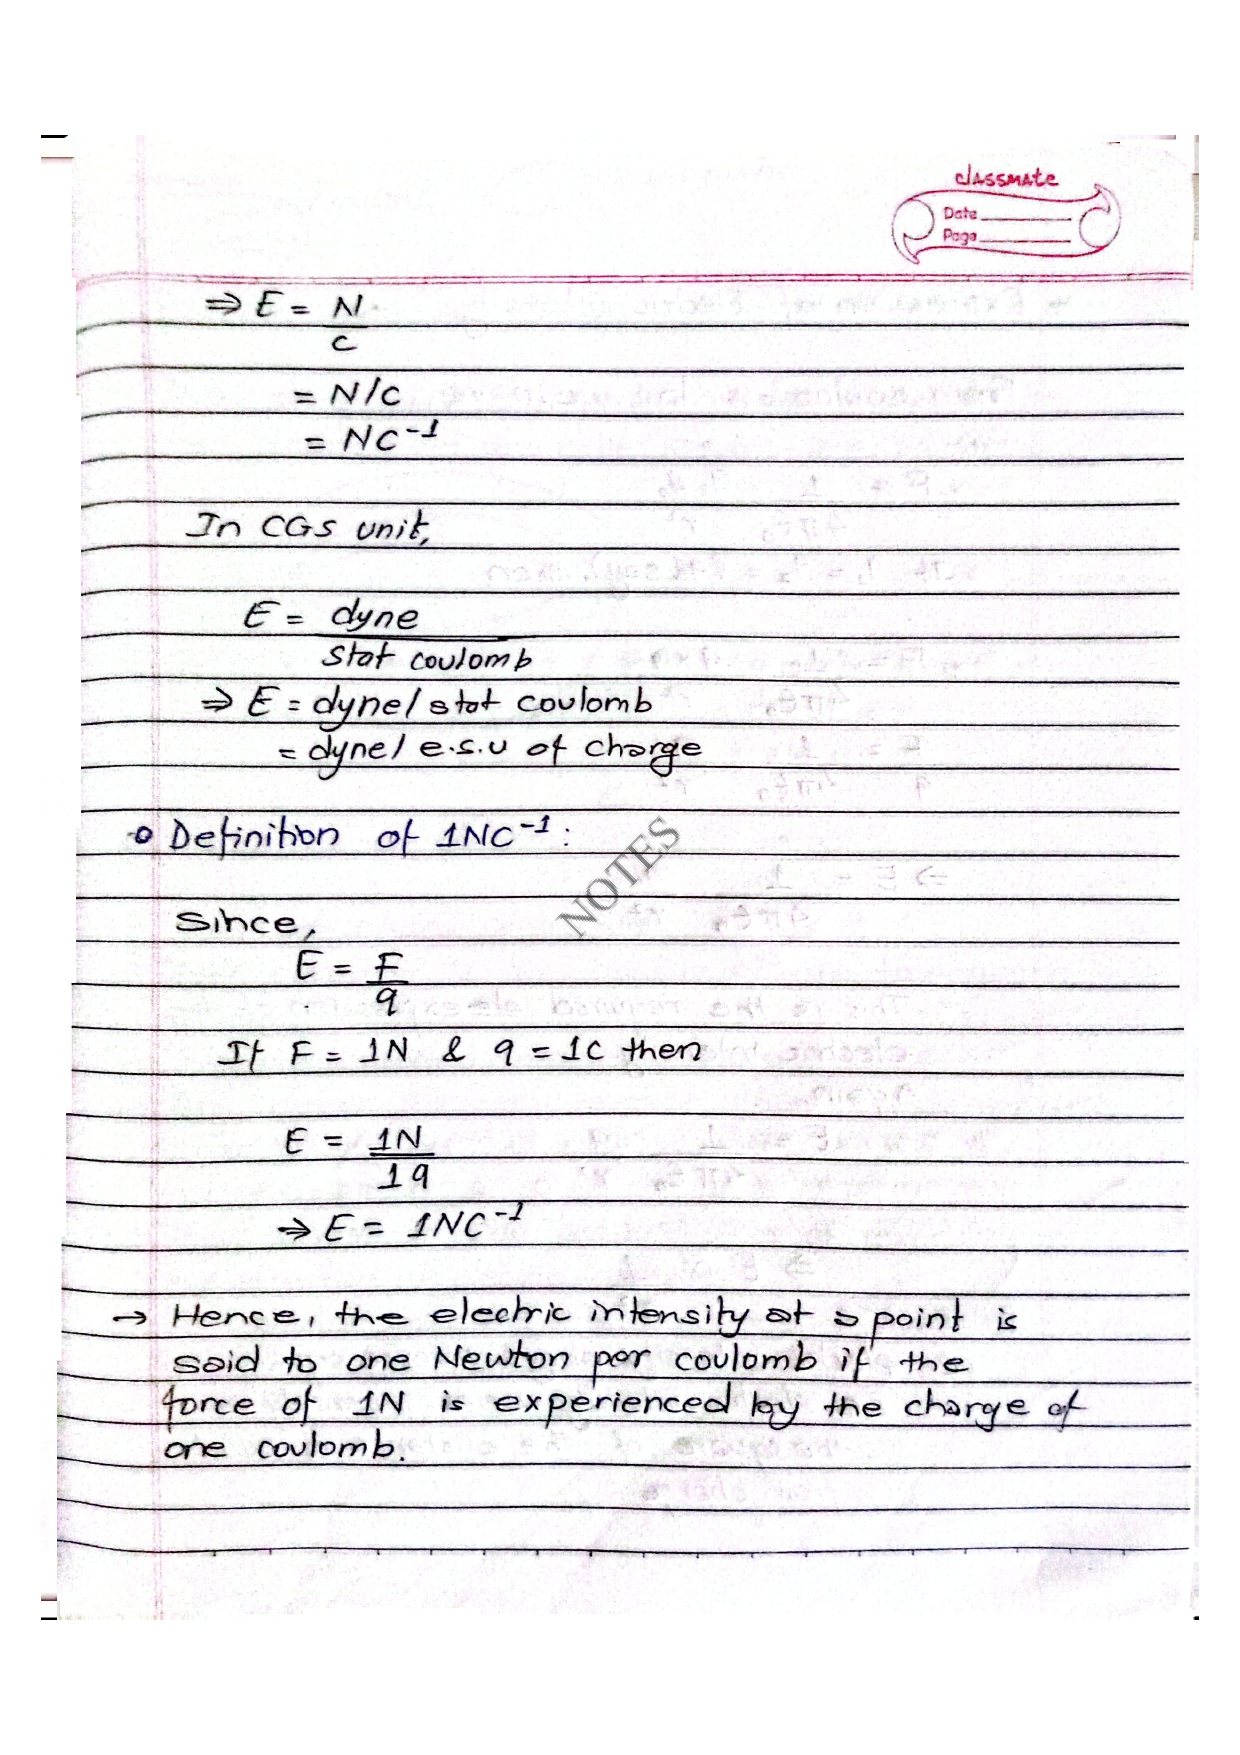 classmate
Date
Page
⇒ E = N
C
= N/C
= NC⁻¹
In CGS unit,
E = dyne
Stat coulomb
⇒ E = dyne/ stat coulomb
= dyne/ e.s.u of charge
Definition of 1NC⁻¹:
NOTES
Since,
E = F
q
If F = 1N & q = 1C then
E = 1N
1q
⇒ E = 1NC⁻¹
→ Hence, the electric intensity at a point is
said to one Newton per coulomb if the
force of 1N is experienced by the charge of
one coulomb.